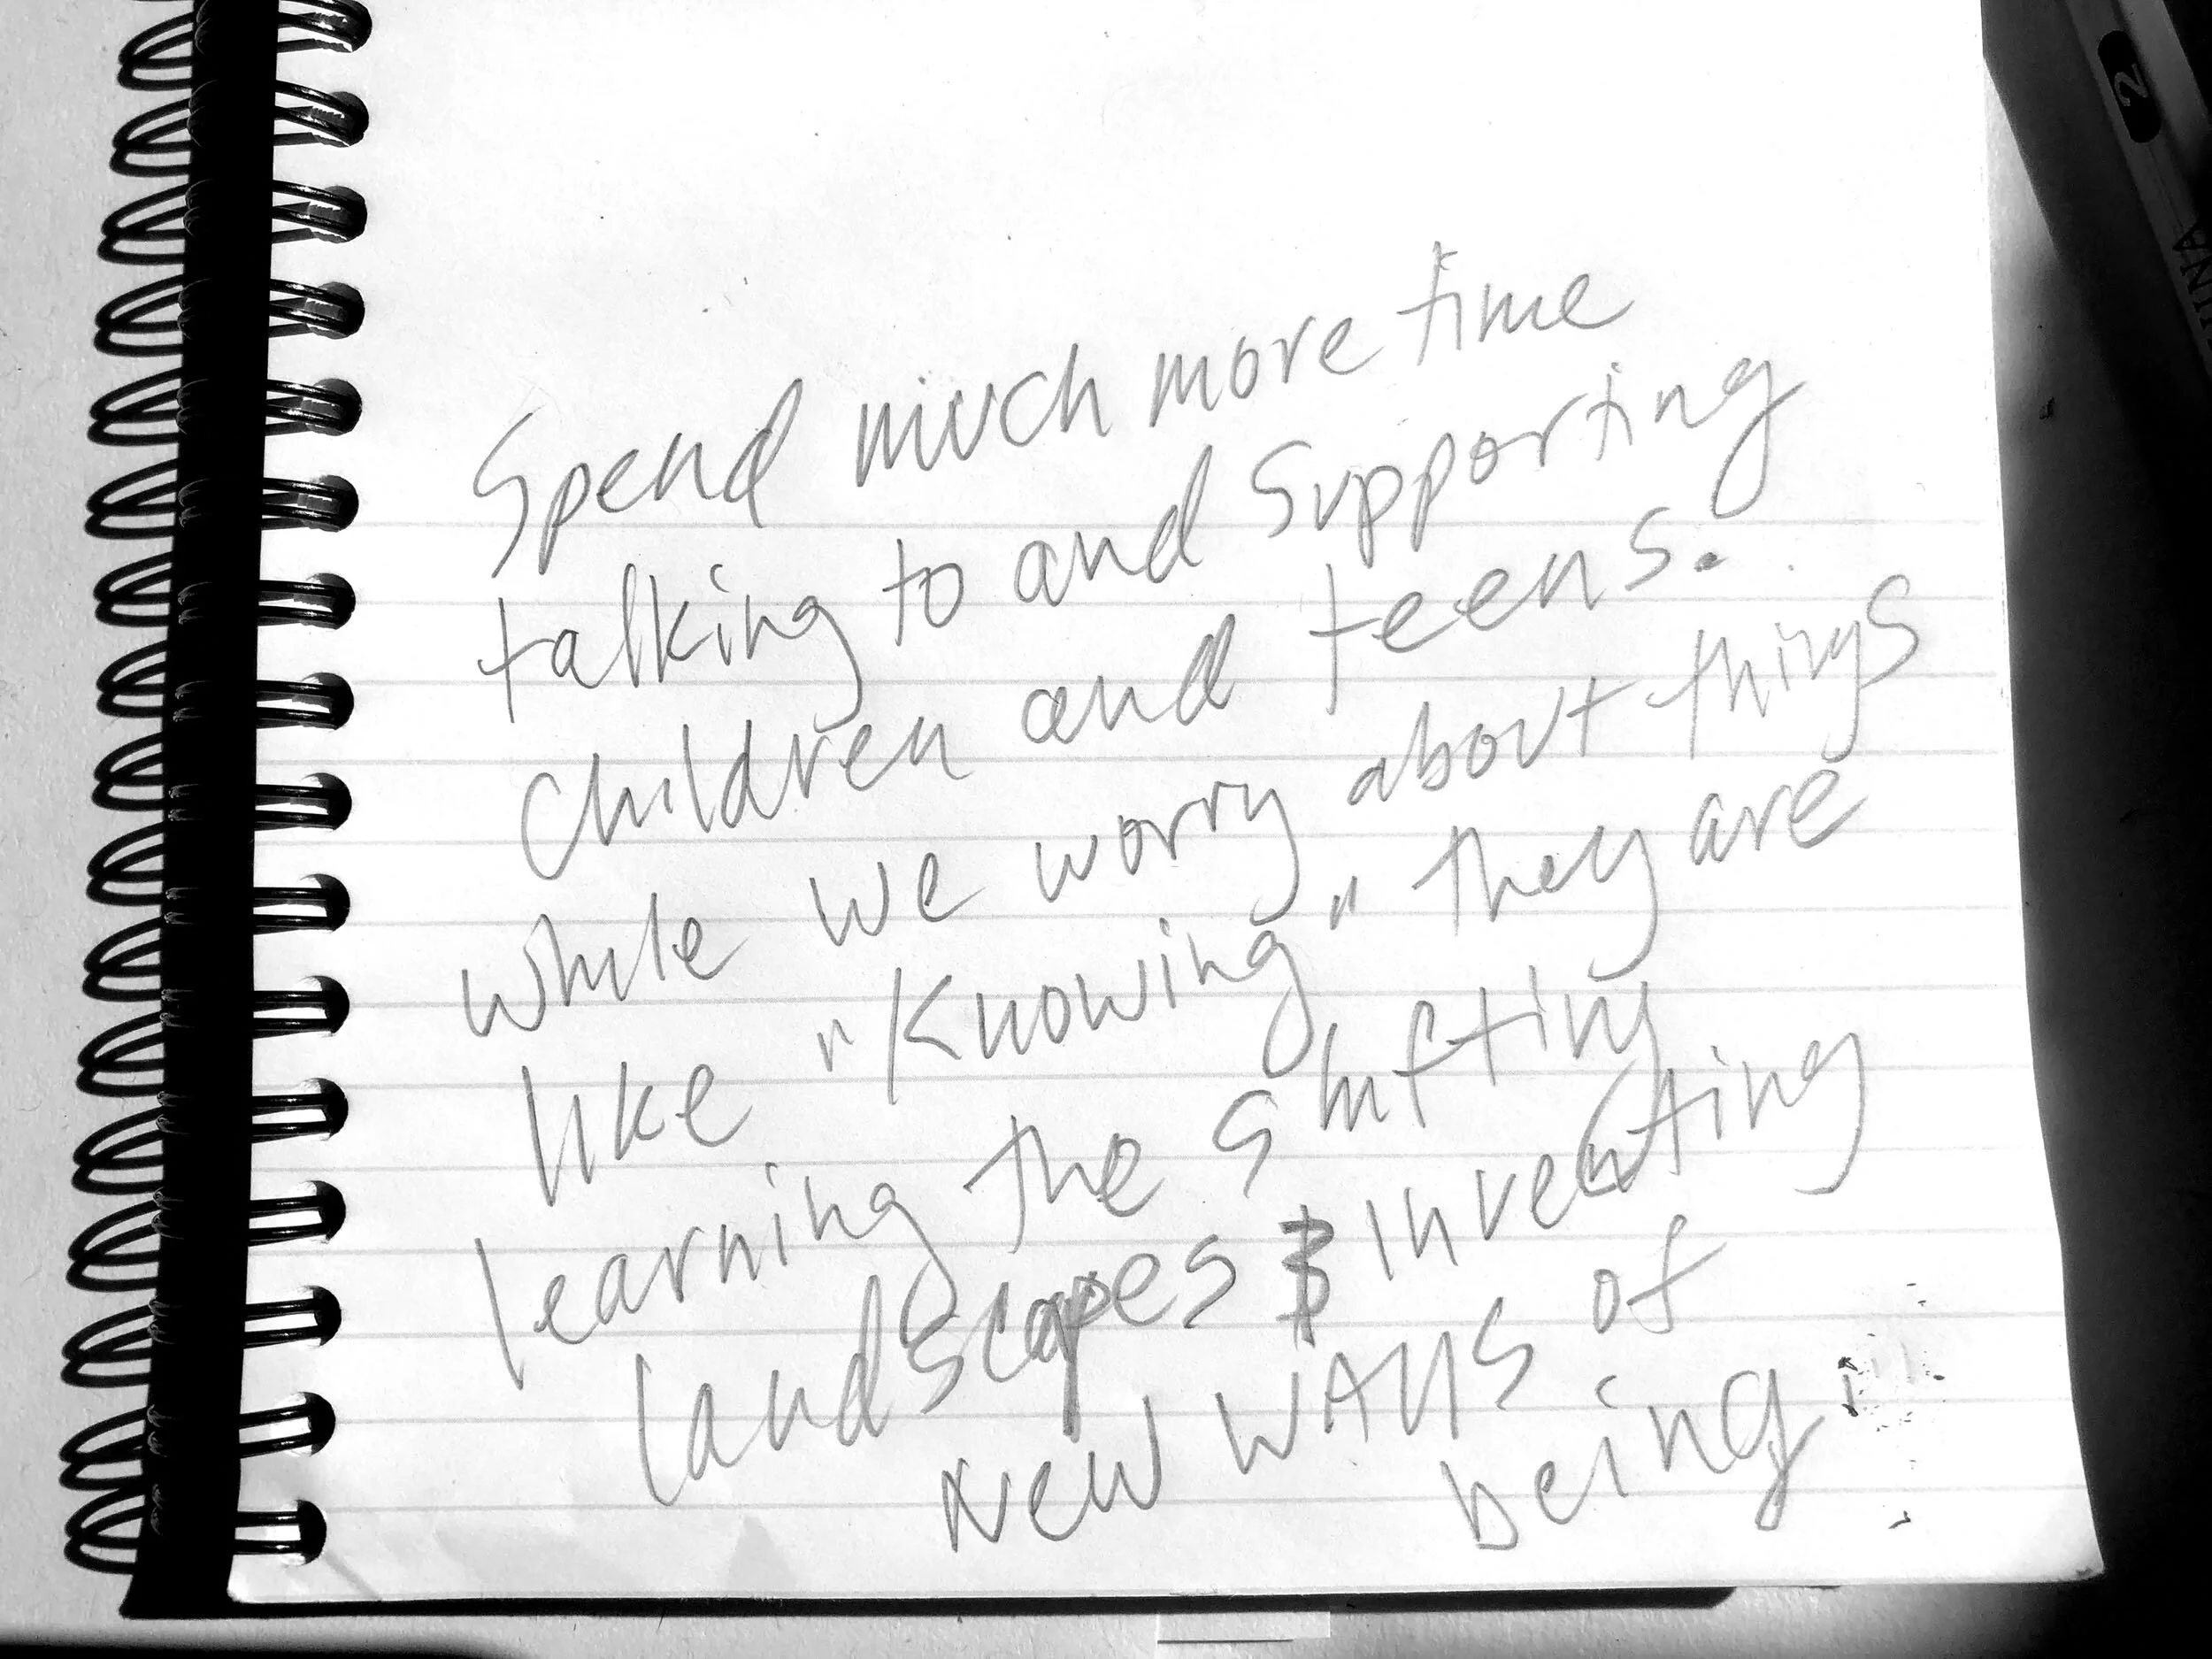 Spend much more time
talking to and supporting
children and teens.
while we worry about things
like "Knowing" they are
learning the shifting
landscapes & inventing
new WAYS of
being.
2